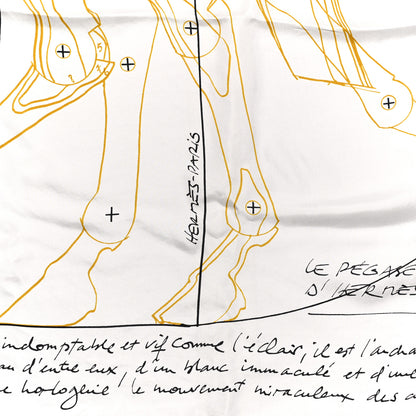 5
HERMÈS-PARIS
LE PÉGASE
D'HERMÈS
indomptable et vif comme l'éclair, il est l'
d'entre eux, d'un blanc immaculé et d'une
horlogerie le mouvement miraculeux des